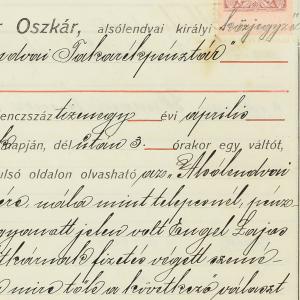 r Oszkár, alsólendvai királyi közjegyző
ndvai Takarékpénztár"
enczszáz tizenegy évi április
napján, dél után 3. órakor egy váltót,
ulsó oldalon olvasható az „Alsólendvai
ére, nála mint telepesnél, pénz
ugyanott jelen volt Engel Lajos
itkárnak fizetés végett szemé
a mire tőle a következő választ